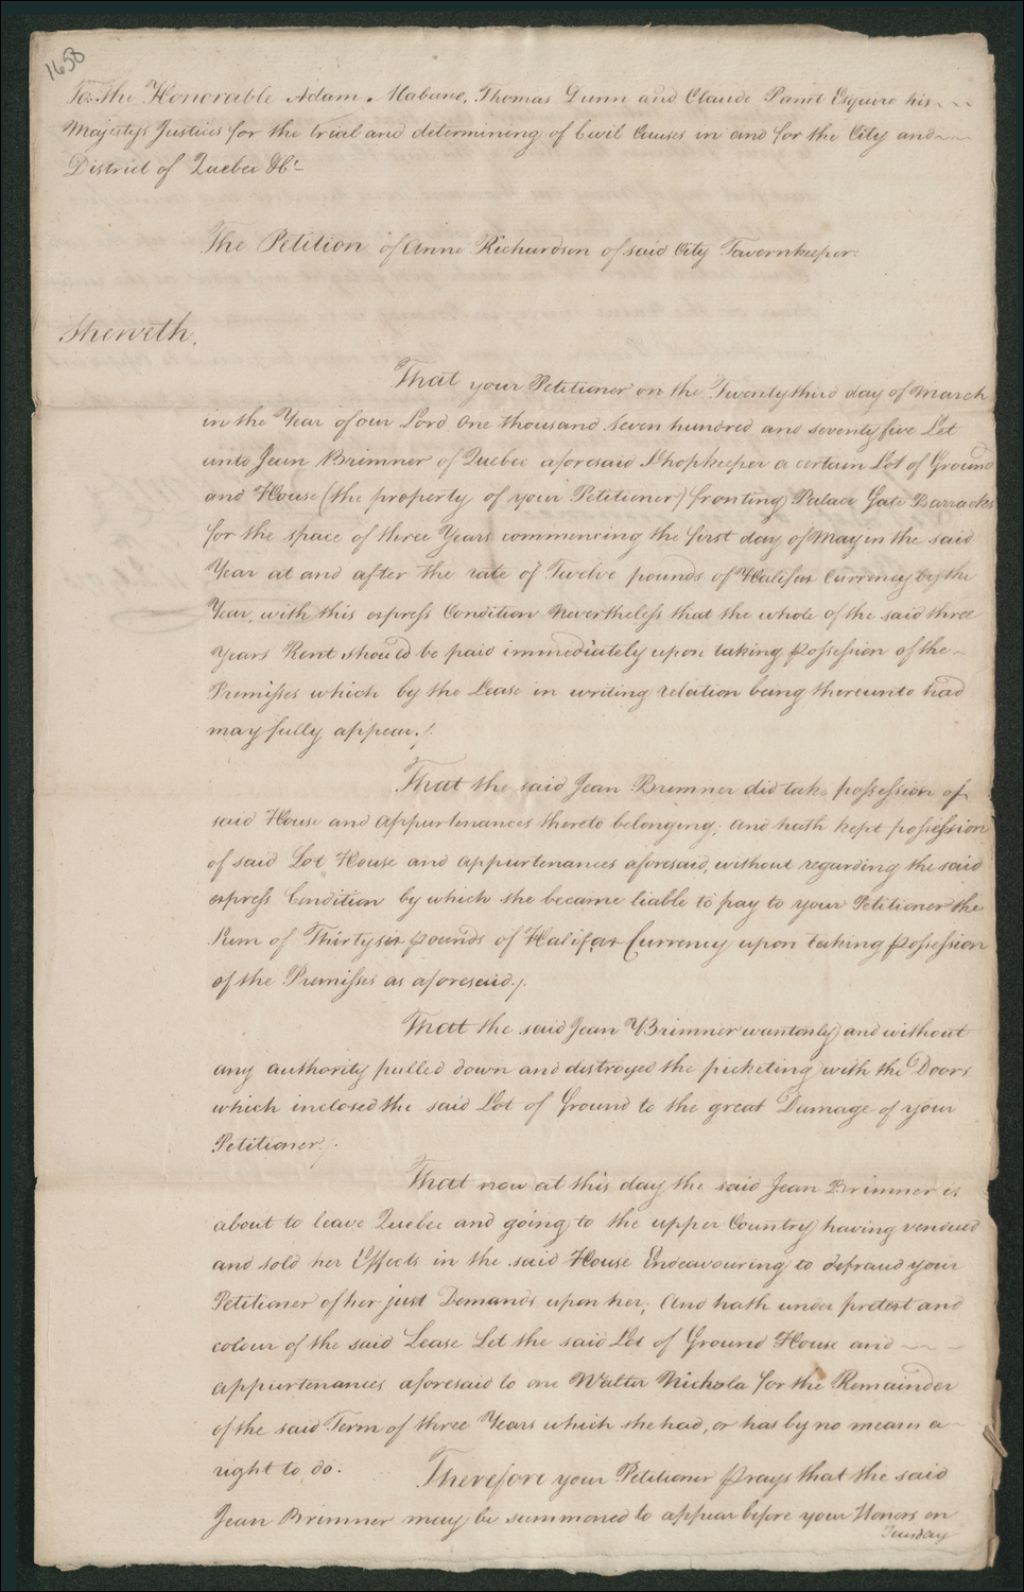 1658
To The Honorable Adam Mabane, Thomas Dunn and Claude Panet Esquire his
Majestys Justices for the trial and determineing of Civil Causes in and for the City and
District of Quebec &c.
The Petition of Anne Richardson of said City Tavernkeeper.
Sheweth,
That your Petitioner on the Twenty third day of March
in the Year of our Lord One thousand Seven hundred and seventy five Let
unto Jean Brimner of Quebec aforesaid Shopkeeper a certain Lot of Ground
and House (the property of your Petitioner) fronting Palace Gate Barracks
for the space of three Years commencing the first day of May in the said
Year at and after the rate of Twelve pounds of Halifax Currency by the
Year, with this express Condition Nevertheless that the whole of the said three
Years Rent should be paid immediately upon taking possession of the
Premisses which by the Lease in writing relation being thereunto had
may fully appear.
That the said Jean Brimner did take possession of
said House and appurtenances thereto belonging; and hath kept possession
of said Lot House and appurtenances aforesaid, without regarding the said
express Condition by which she became liable to pay to your Petitioner the
Sum of Thirty six pounds of Halifax Currency upon taking possession
of the Premisses as aforesaid.
That the said Jean Brimner wantonly and without
any authority pulled down and destroyed the picketing with the Doors
which inclosed the said Lot of Ground to the great Damage of your
Petitioner.
That now at this day the said Jean Brimner is
about to leave Quebec and going to the upper Country having vendued
and sold her Effects in the said House Endeavouring to defraud your
Petitioner of her just Demands upon her; And hath under pretext and
colour of the said Lease Let the said Lot of Ground House and
appurtenances aforesaid to one Walter Nichola for the Remainder
of the said Term of three Years which she had, or has by no means a
right to do.
Therefore your Petitioner prays that the said
Jean Brimner may be summoned to appear before your Honors on
Tuesday